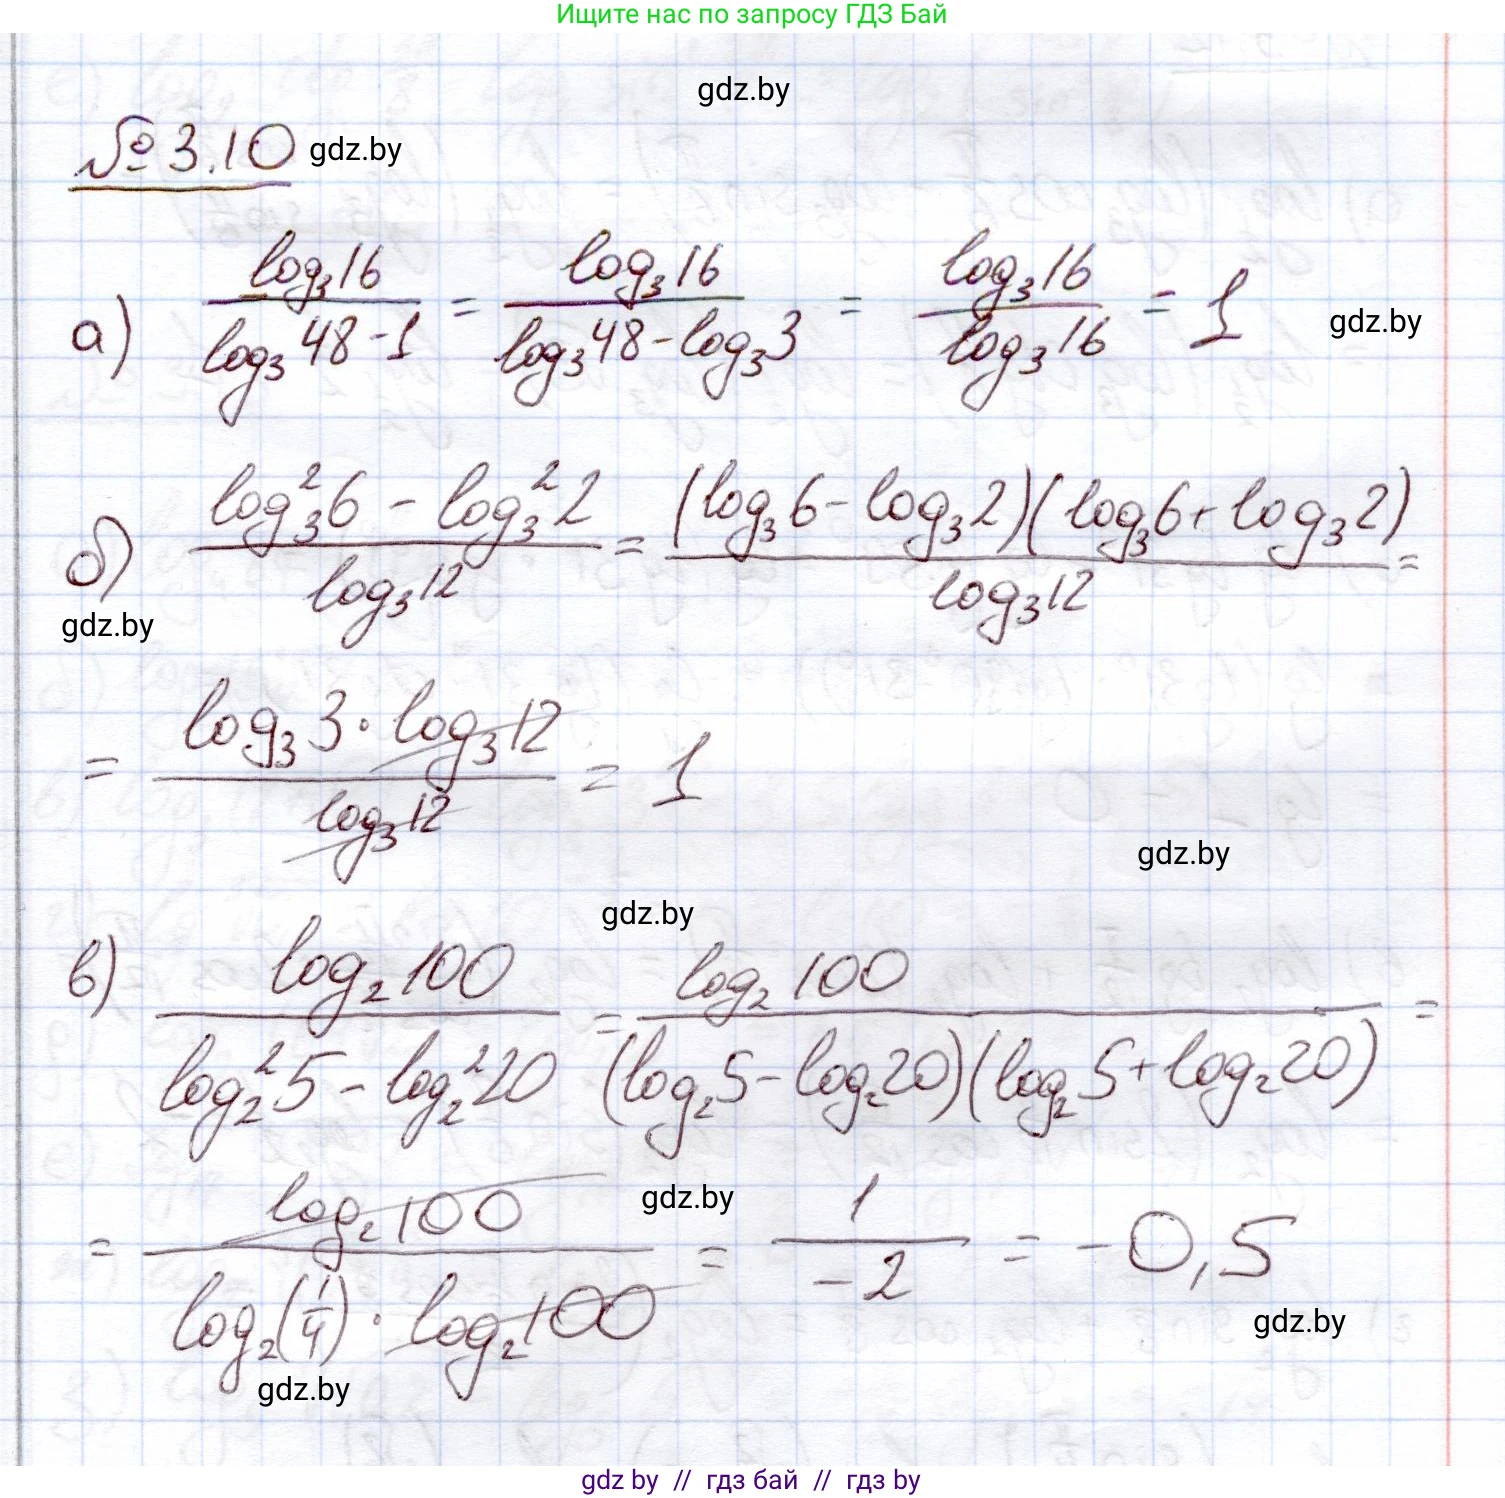 Ищите нас по запросу ГДЗ Бай
gdz.by
№ 3.10 gdz.by
а) log₃16 / (log₃48 - 1) = log₃16 / (log₃48 - log₃3) = log₃16 / log₃16 = 1
gdz.by
б) (log₃²6 - log₃²2) / log₃12 = (log₃6 - log₃2)(log₃6 + log₃2) / log₃12 =
gdz.by
= log₃3 · log₃12 / log₃12 = 1
gdz.by
gdz.by
в) log₂100 / (log₂²5 - log₂²20) = log₂100 / (log₂5 - log₂20)(log₂5 + log₂20) =
gdz.by
= log₂100 / log₂(1/4) · log₂100 = 1 / -2 = -0,5
gdz.by
gdz.by
gdz by // гдз бай // гдз by